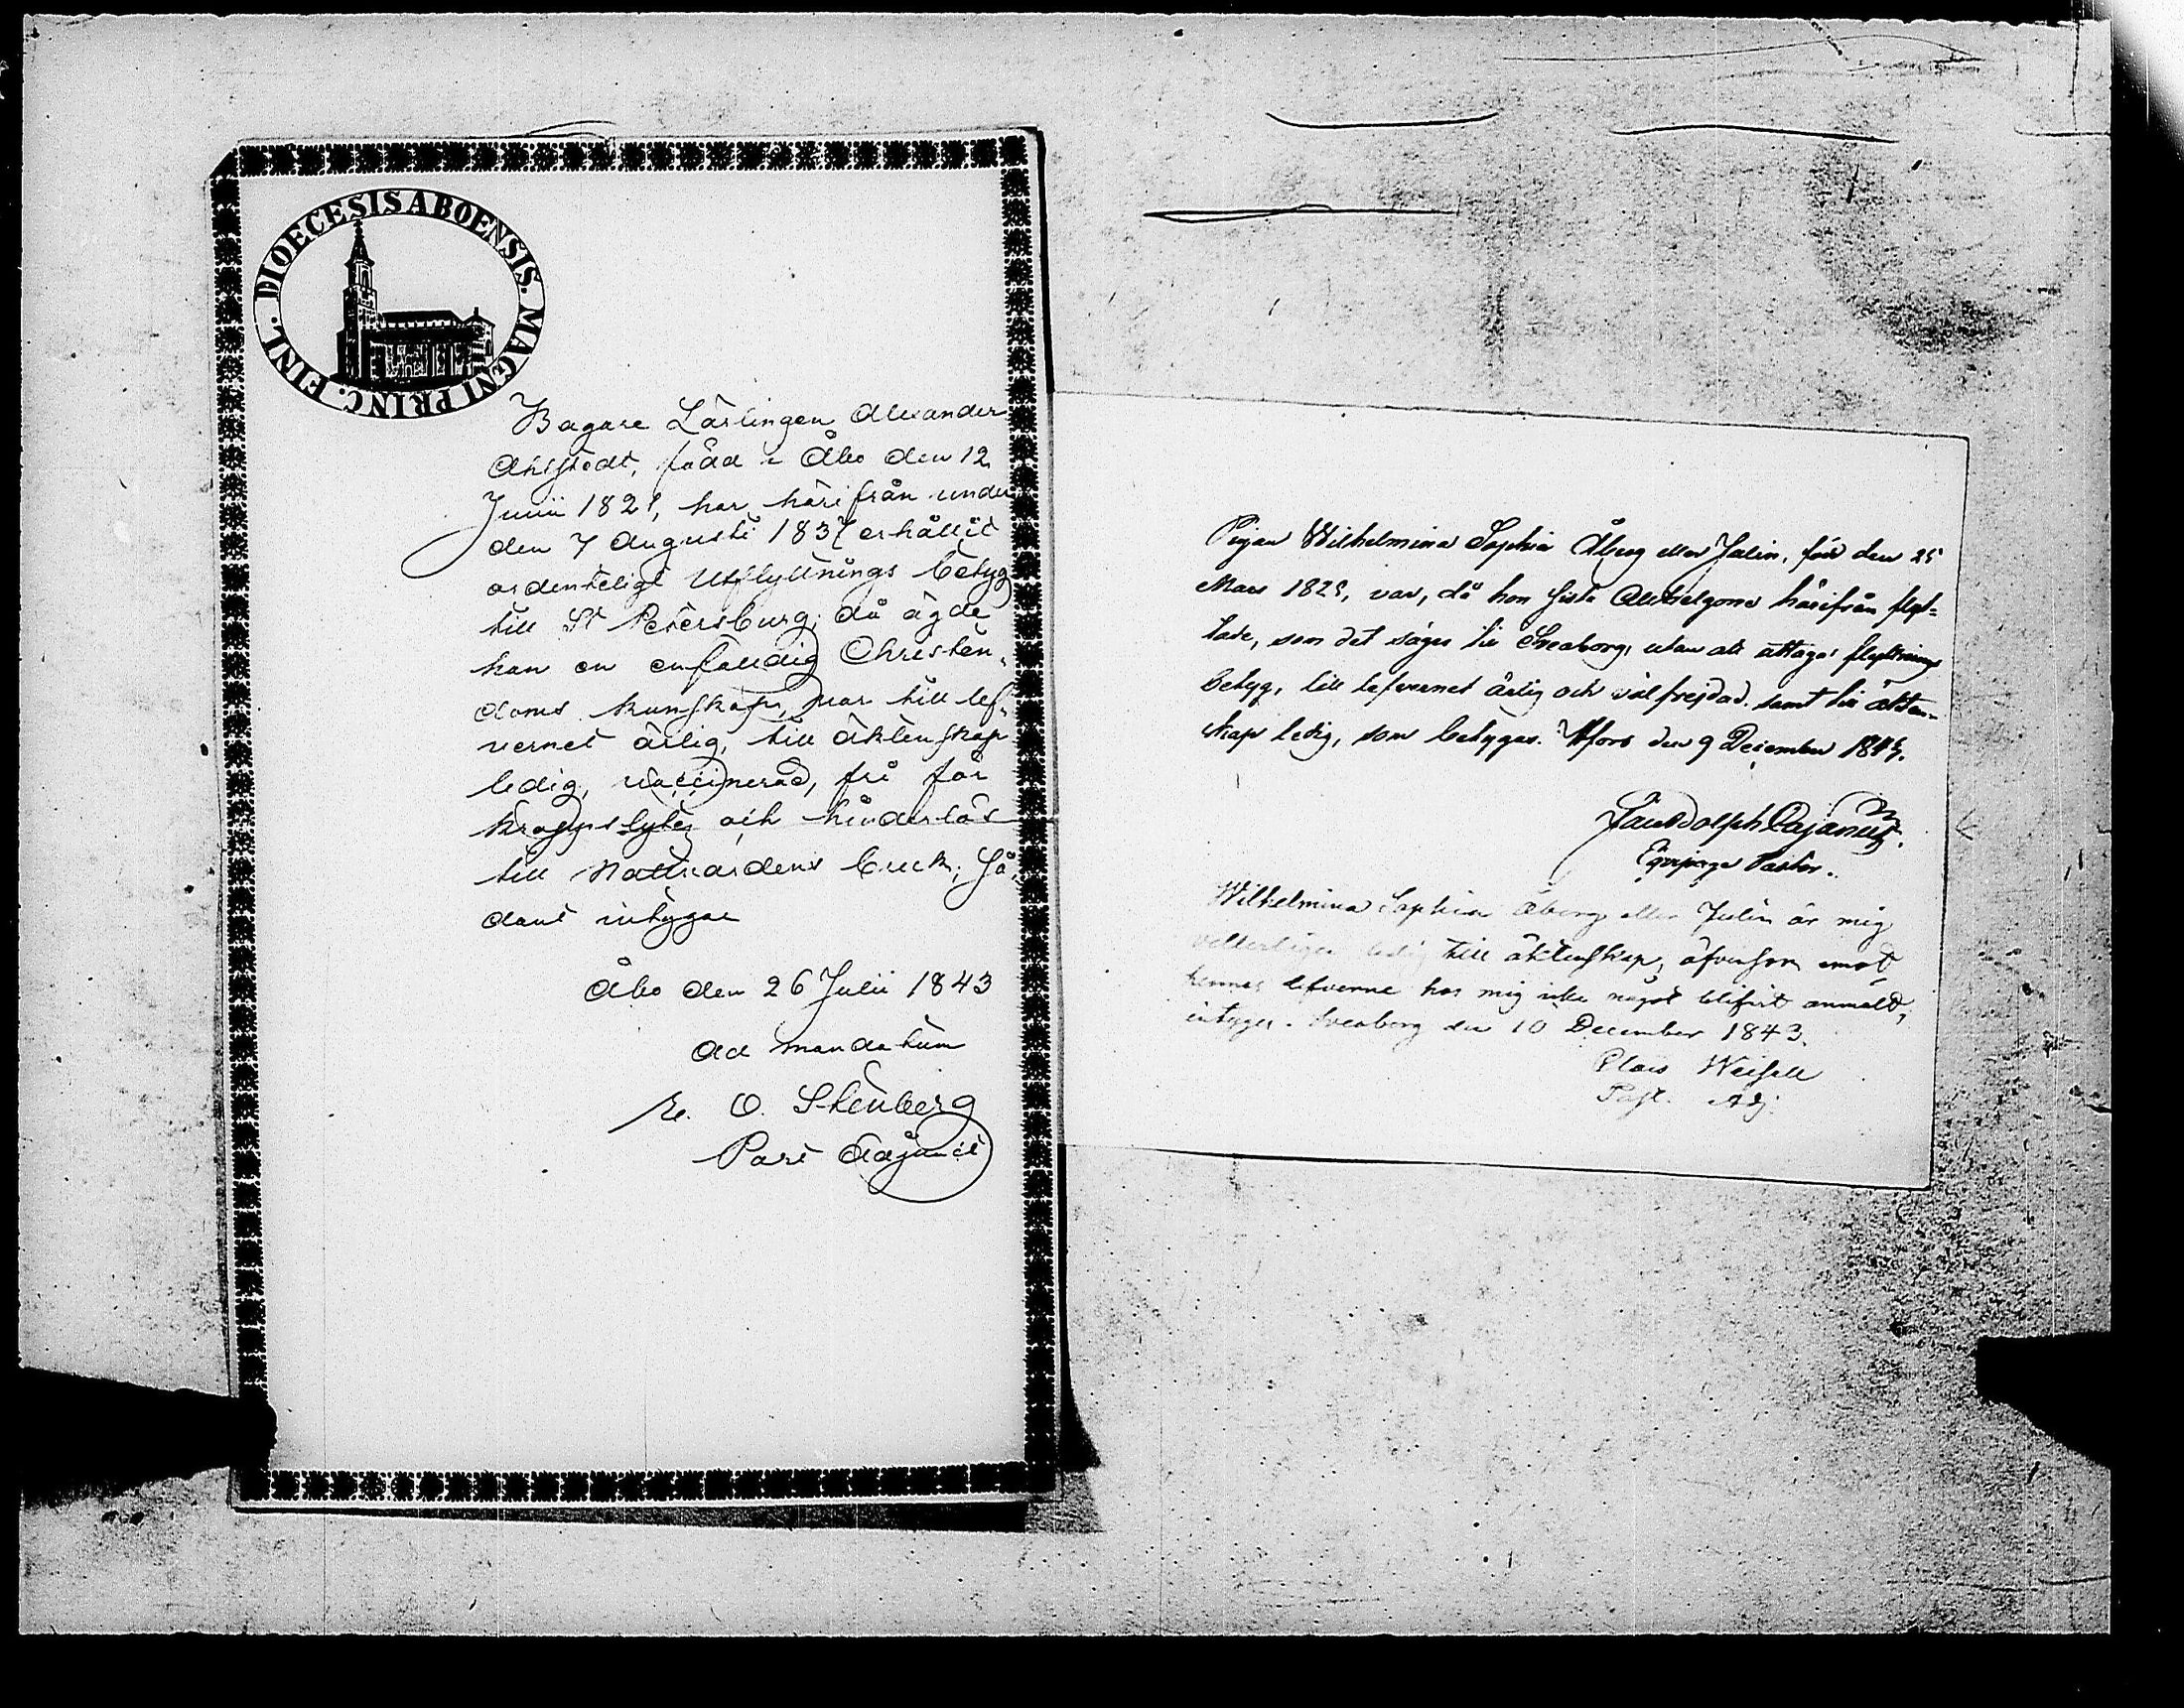 DIOECESIS ABOENSIS. MAGNI PRINC. FINL.
Bagare Lärlingen Alexander
Ahlstedt, född i Åbo den 12
Junii 1821, har härifrån under
den 7 Augusti 1837 erhållit
ordenteligt Utflyttnings betyg
till St Petersburg; då ägde
han en enfaldig Christen,
doms kunskap, var till lef,
vernet ärlig, till äktenskap
ledig, vaccinerad, fri för
kroppslyte och hinderlös
till Nattvardens bruk; Så,
dant intygar
Åbo den 26 Julii 1843
ad mandatum
O. Stenberg
Past Adjunct
Pigan Wilhelmina Sophia Åberg eller Julin, född den 25
Mars 1825, var, då hon sista Allhelgona härifrån flyt-
tade, som det säges till Sveaborg, utan att uttaga flyttnings
betyg, till lefvernet ärlig och välfrejdad samt till äkten-
skap ledig, som betygas. Hfors den 9 December 1843.
Cajanus.
Equipage Pastor.
Wilhelmina Sophia Åberg eller Julin är mig
veterligen ledig till äktenskap, äfvensom emot
hennes lefverne hos mig icke något blifvit anmäldt,
intygar. Sveaborg den 10 December 1843.
Claës
Past. Adj.